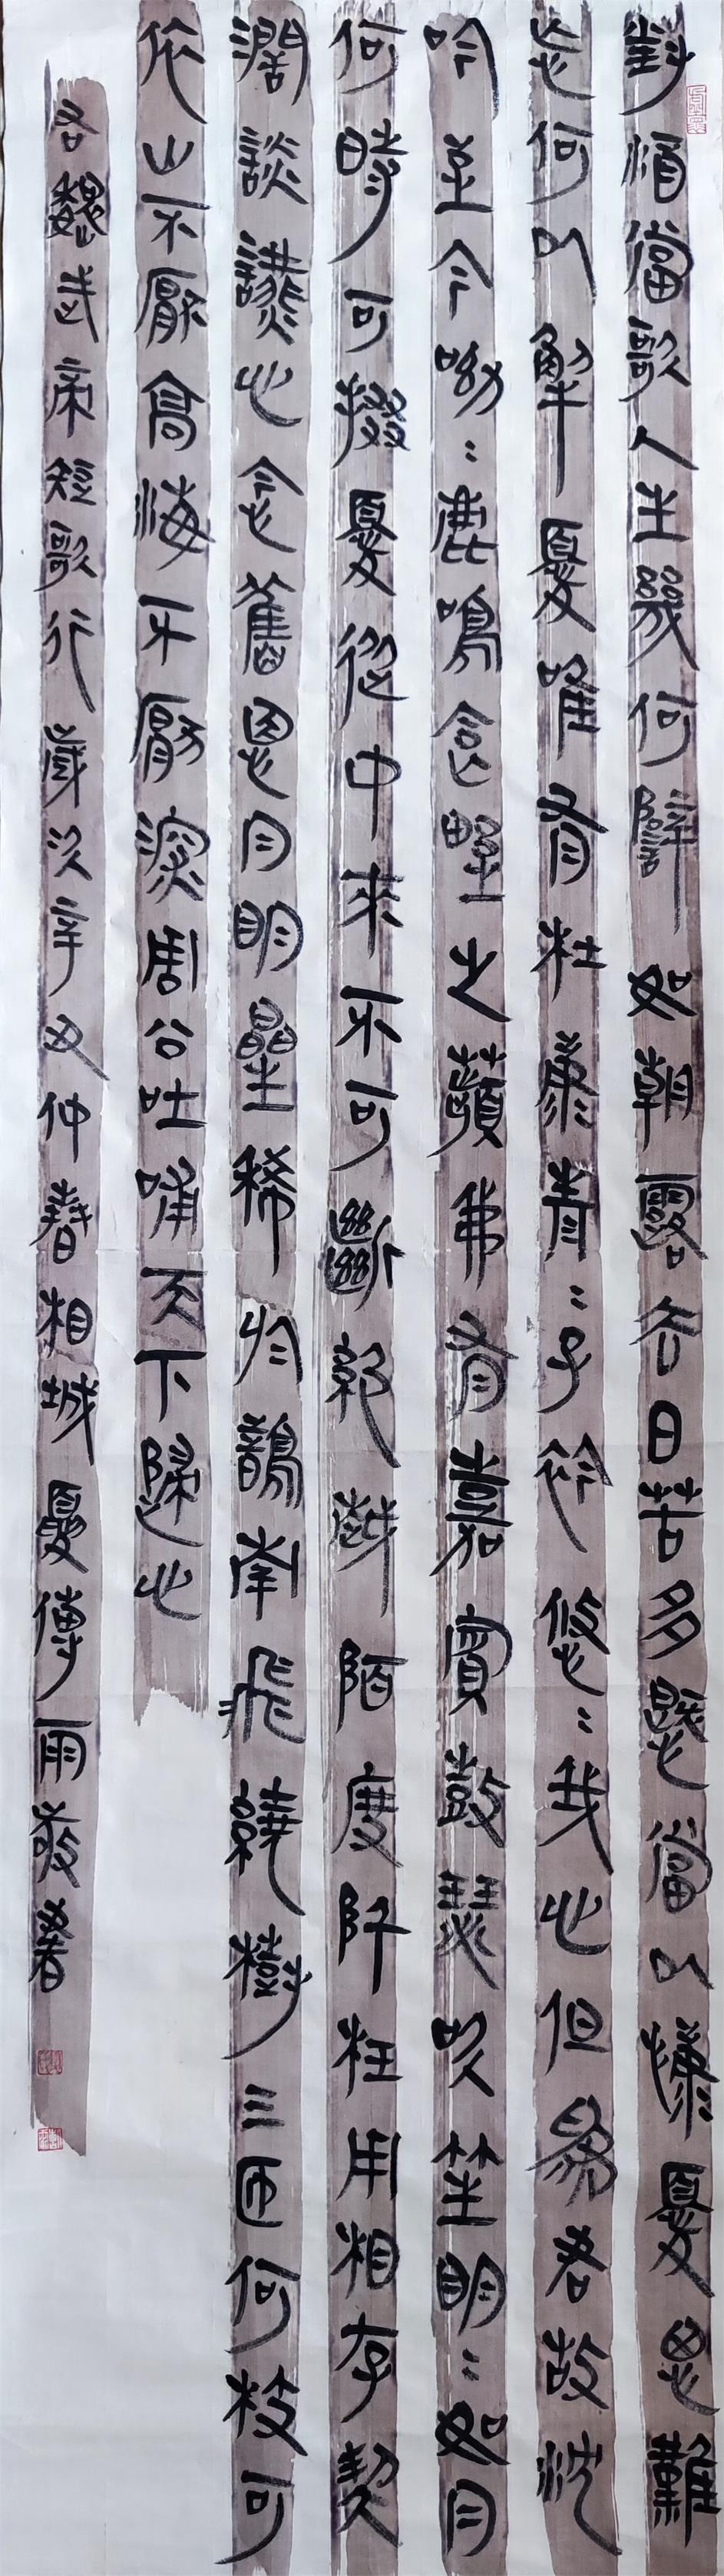 對酒當歌人生幾何譬如朝露去日苦多慨當以慷憂思難
忘何以解憂唯有杜康青〻子衿悠〻我心但為君故沈
吟至今呦〻鹿鳴食野之蘋我有嘉賓鼓瑟吹笙明〻如月
何時可掇憂從中來不可斷絕越陌度阡枉用相存契
闊談讌心念舊恩月明星稀烏鵲南飛繞樹三匝何枝可
依山不厭高海不厭深周公吐哺天下歸心
右魏武帝短歌行歲次辛丑仲春相城憂傳雨敬書